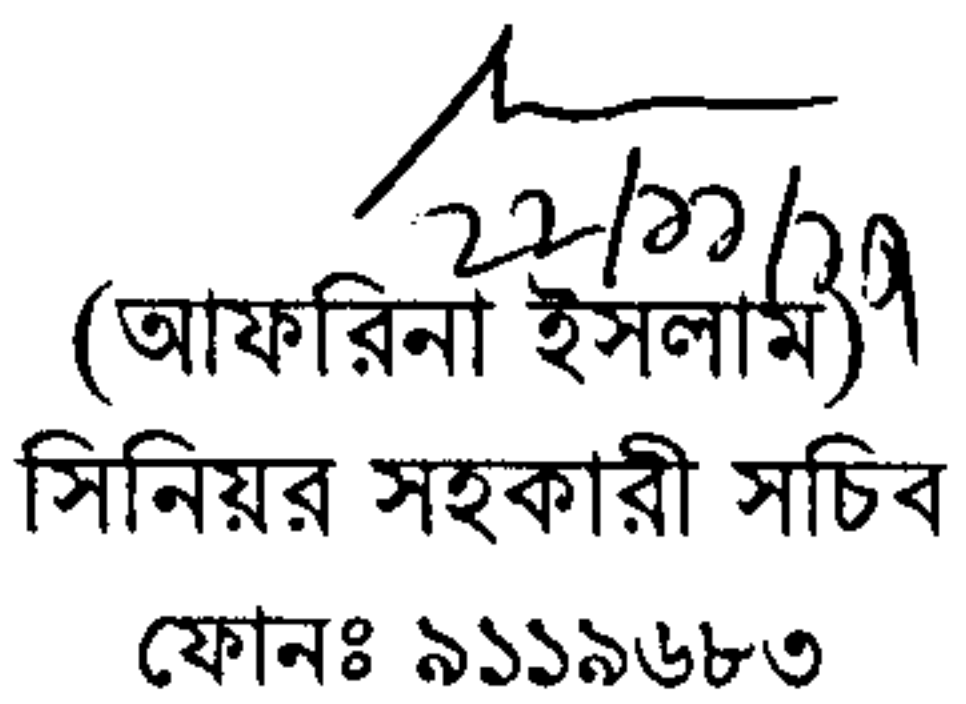 ২২/১১/১৭
(আফরিনা ইসলাম)
সিনিয়র সহকারী সচিব
ফোনঃ ৯১১৯৬৮৩